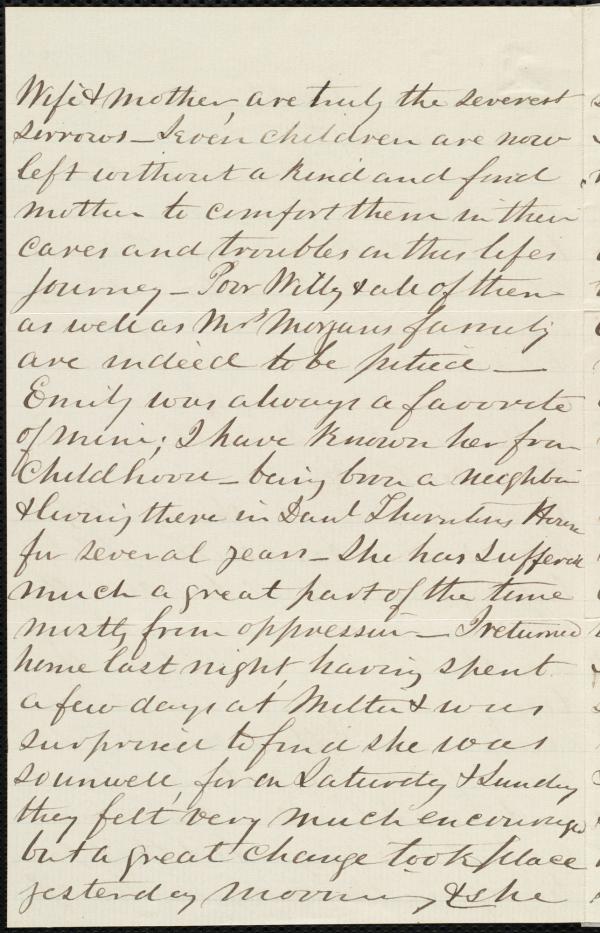 Wife & Mother, are truly the severest
sorrows – Seven children are now
left without a kind and fond
mother to comfort them in their
cares and troubles on this lifes
Journey – Poor Willy & all of them
as well as Mr Morgans family
are indeed to be pitied —
Emily was always a favorite
of mine; I have known her from
Childhood – being born a neighbor
& living there in Danl Thorntons House
for several years – She has suffered
much a great part of the time
mostly from oppression – I returned
home last night, having spent
a few days at Milton & was
surprised to find she was
so unwell, for on Saturday & Sunday
they felt very much encouraged
but a great change took place
yesterday morning & she